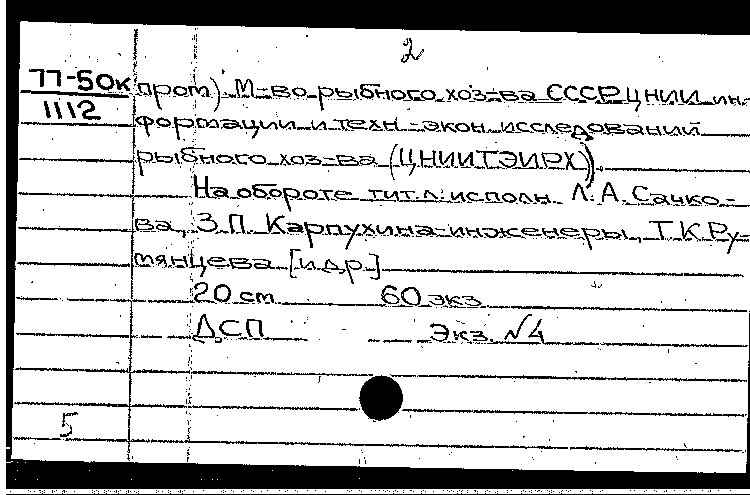 2
77-50к пром). М-во рыбного хоз-ва СССР ЦНИИ ин-
1112
формации и техн.-экон. исследований
рыбного хоз-ва (ЦНИИТЭИРХ).
На обороте тит. л.: исполн. Л. А. Сачко-
ва, З. П. Карпухина-инженеры, Т. К. Ру-
мянцева [и др.]
20 cm 60 экз.
ДСП Экз. №4
5